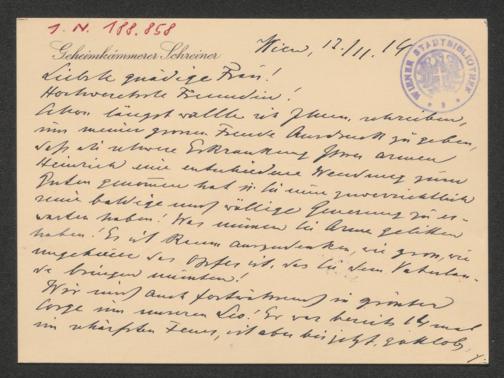 I. N. 188.858
Geheimkämmerer Schreiner
Wien, 12./11. 14
WIENER STADTBIBLIOTHEK
Liebste gnädige Frau!
Hochverehrte Freundin!
Schon längst wollte ich Ihnen schreiben,
um meiner grossen Freude Ausdruck zu geben,
daß die schwere Erkrankung Ihres armen
Heinrich eine entschiedene Wendung zum
Guten genommen hat u. Sie nun zuversichtlich
seine baldige und völlige Genesung zu er-
warten haben! Was müssen Sie Arme gelitten
haben! Es ist kaum auszudenken, wie gross, wie
ungeheuer das Opfer ist, das Sie dem Vaterlan-
de bringen müssen!
Wir sind auch fortwährend in größter
Sorge um unseren Leo! Er war bereits 14 mal
im schärfsten Feuer, ist aber bis jetzt, gottlob,